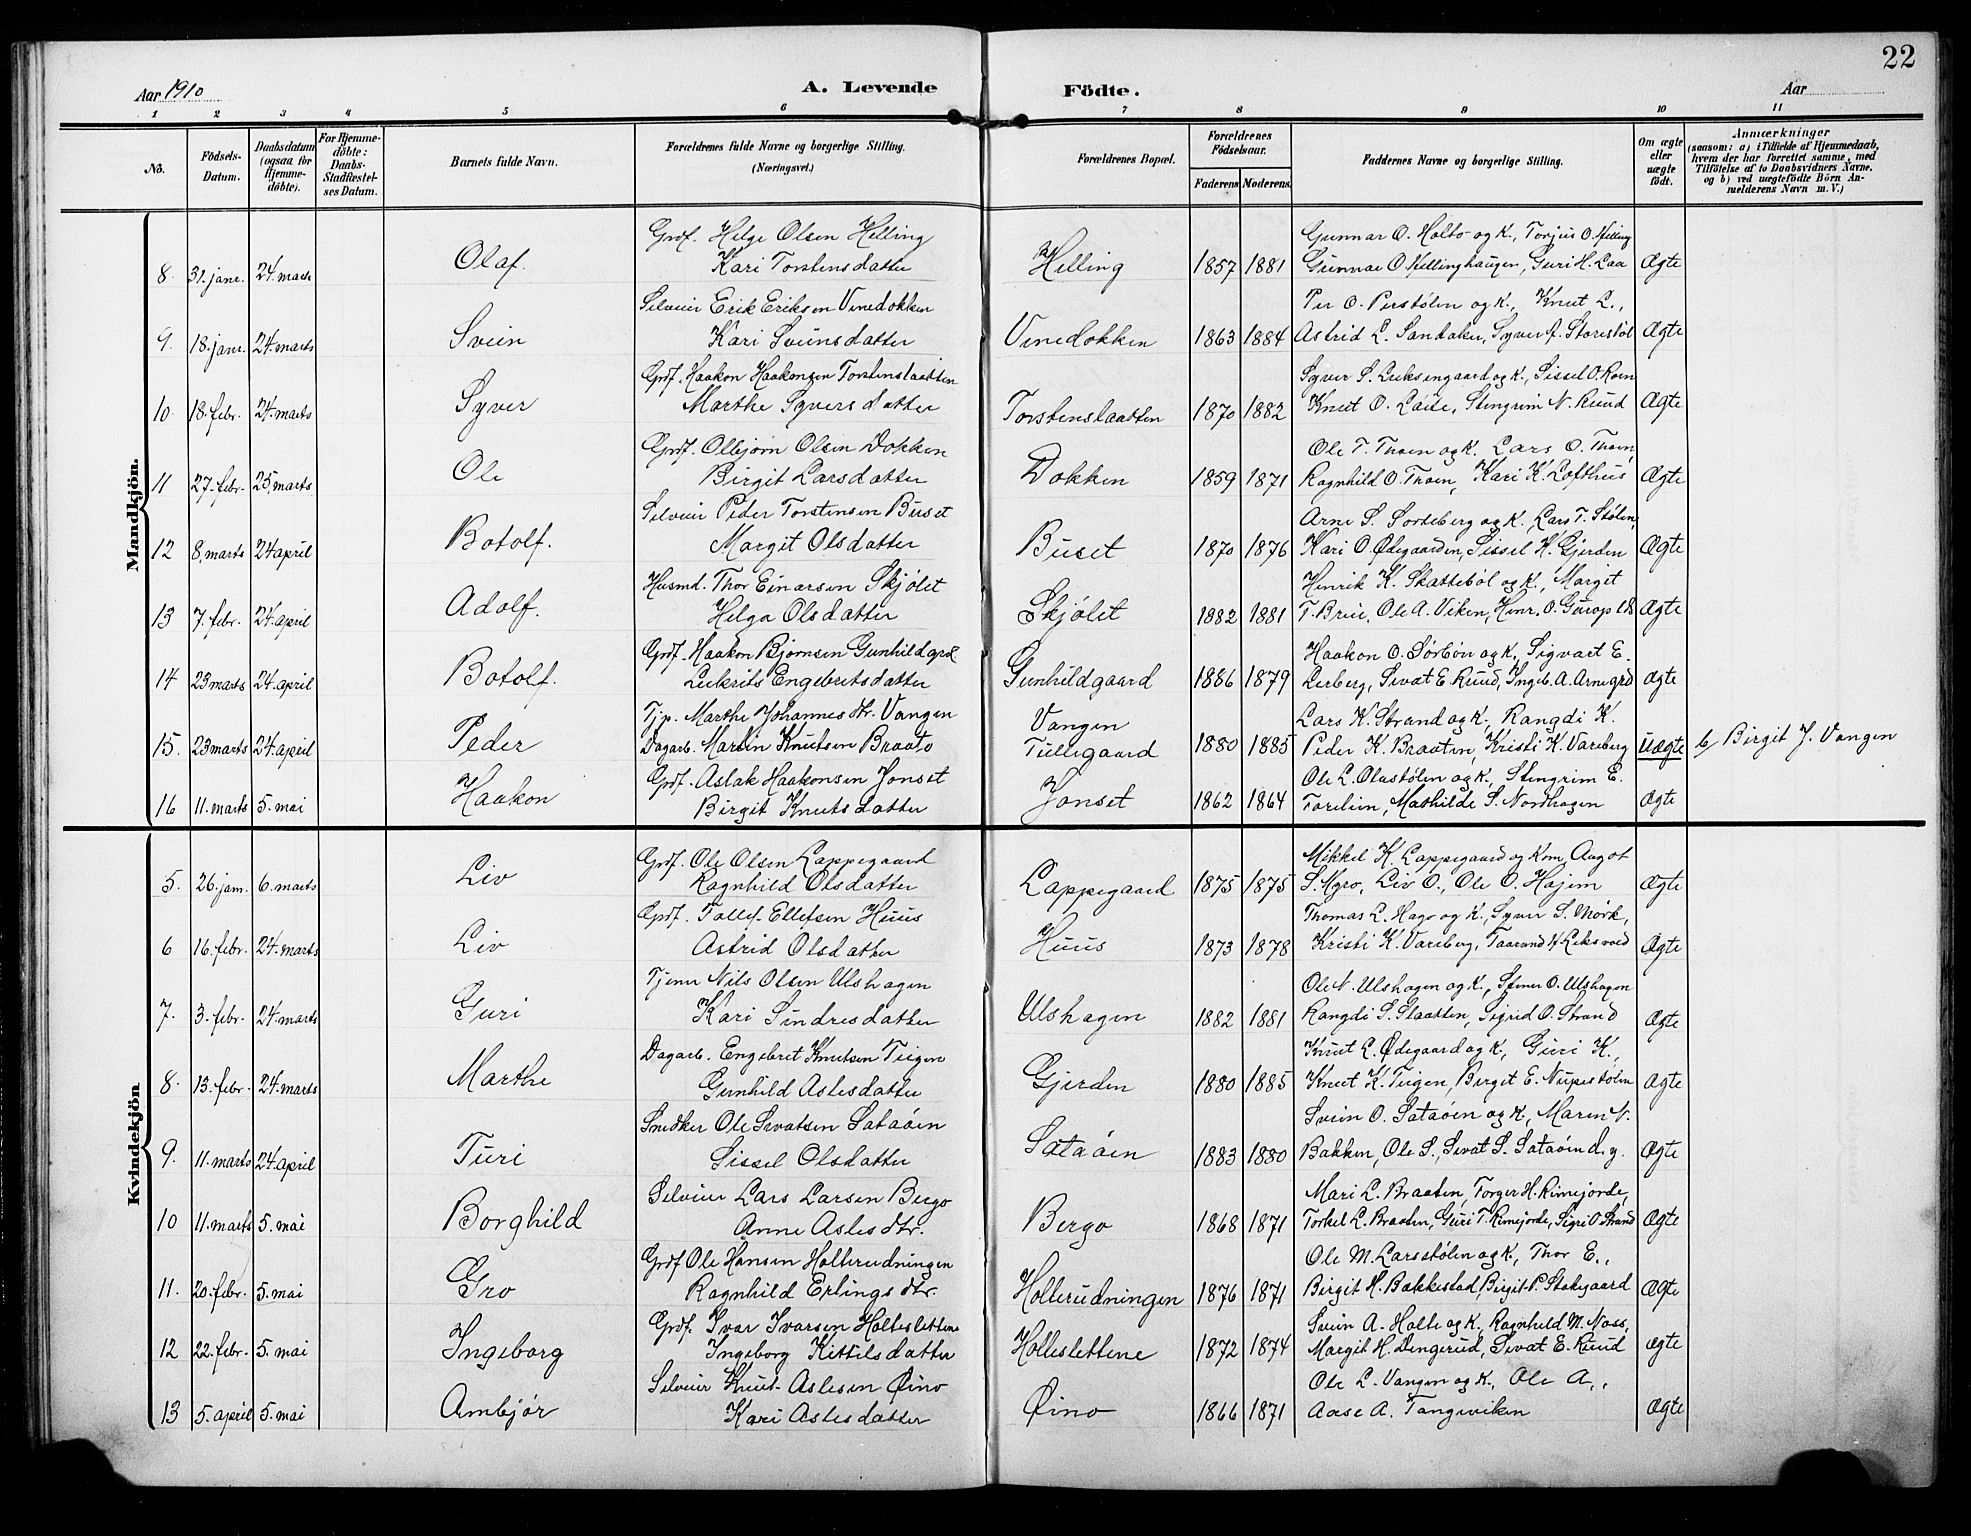 22
Aar 1910 A. Levende Födte. Aar
1 2 3 4 5 6 7 8 9 10 11
No. Födsels-Datum. Daabsdatum (ogsaa för Hjemmedöbte). For Hjemmedöbte: Daabs-Stadfæstelses Datum. Barnets fulde Navn. Forældrenes fulde Navne og borgerlige Stilling. (Næringsvei.) Forældrenes Bopæl. Forældrenes Födselsaar. Faderens Moderens. Faddernes Navne og borgerlige Stilling. Om ægte eller uægte födt. Anmærkninger (saasom: a) i Tilfælde af Hjemmedaab, hvem der har forrettet samme, med Tilföielse af to Daabsvidners Navne, og b) ved uægtefödte Börn Anmelderens Navn m. V.)
Mandkjön.
Grdf. Helge Olsen Helling Gunnar O. Holto og K., Torjus O. Helling
8. 31. janr. 24. marts Olaf. Kari Torstensdatter Helling 1857 1881 Gunnar O. Hellinghaugen, Guri H. Laa Ægte
Selveier Erik Eriksen Vinedokken Per O. Perstølen og K., Knut L.,
9. 18. janr. 24. marts Svein Kari Sveinsdatter Vinedokken 1863 1884 Astrid L. Sandaker, Syver A. Storestøl Ægte
Grdf. Haakon Haakonsen Torstenslaatten Syver S. Leksengaard og K., Sissel O. Roen
10. 18. febr. 24. marts Syver Marthe Syversdatter Torstenslaatten 1870 1882 Knut O. Leite, Stengrim N. Ruud Ægte
Grdf. Olbjørn Olsen Dokken Ole T. Thoen og K. Lars O. Thoen,
11 27. febr. 25. marts Ole Birgit Larsdatter Dokken 1859 1871 Ragnhild O. Thoen, Kari K. Lofthus Ægte
Selveier Peder Torstensen Buset Arne S. Sorteberg og K., Lars T. Stølen,
12 8. marts 24 april Botolf. Margit Olsdatter Buset 1870 1876 Kari O. Ødegaarden, Sissel H. Gjerden Ægte
Husmd. Thor Einarsen Skjølet Henrik K. Skattebøl og K., Margit
13 7. febr. 24. april Adolf. Helga Olsdatter Skjølet 1882 1881 T. Brue, Ole A. Viken, Henr. O. Ægte
Grdf. Haakon Bjørnsen Gunhildgrd Haakon O. Sørbøn og K., Sigvart E.
14 23 marts 24. april Botolf. Lukrits Engebretsdatter Gunhildgaard 1886 1879 Lerberg, Sevat E. Ruud, Ingeb. A. Arnegrd Ægte
Tjp. Marthe Johannesdtr. Vangen Vangen Lars K. Strand og K., Rangdi K.
15. 23 marts 24. april Peder Dagarb. Martin Knutsen Braato Tullegaard 1880 1885 Peder K. Braaten, Kristi K. Vareberg Uægte b, Birgit J. Vangen
Grdf. Aslak Haakonsen Jonset Ole L. Olastølen og K., Stengrim E.
16 11. marts 5. mai Haakon Birgit Knutsdatter Jonset 1862 1864 Foreliin, Mathilde S. Nordhagen Ægte
Kvindekjön
Grdf. Ole Olsen Lappegaard Mikkel K. Lappegaard og Kom, Aagot
5. 26. jan. 6. marts Liv Ragnhild Olsdatter Lappegaard 1875 1875 S. Myro, Liv O., Ole O. Hajem Ægte
Grdf. Tollef Ellefsen Huus Thomas L. Hago og K., Syver S. Mørk,
6 16. febr. 24. marts Liv Astrid Olsdatter Huus 1873 1878 Kristi K. Vareberg, Taarand H. Leksvold Ægte
Tjener Nils Olsen Ulshagen Ole N. Ulshagen og K., Steiner O. Ulshagen
7. 3. febr. 24. marts Guri Kari Sindresdatter Ulshagen 1882 1881 Rangdi S. Slaatten, Sigrid O. Strand Ægte
Dagarb. Engebret Knutsen Teigen Knut L. Ødegaard og K., Guri K.,
8. 13. febr. 24. marts Marthe Gunhild Aslesdatter Gjerden 1880 1885 Knut K. Teigen, Birget E. Nupestølen Ægte
Snedker Ole Sevatsen Sataøien Svein O. Sataøien og K., Maren N.
9. 11. marts 24. april Turi Sissel Olsdatter Sataøien 1883 1880 Bakken, Ole S., Sevat S. Sataøien d. y. Ægte
Selveier Lars Larsen Bergo Mari L. Braaten, Torger H. Rimejorde,
10 11. marts 5. mai Borghild Anne Aslesdtr. Bergo 1868 1871 Torkel L. Braaten, Guri T. Rimejorde, Sigri O. Strand Ægte
Grdf Ole Hansen Holterudningen Ole M. Larsstølen og K., Thor E.,
11. 20. febr. 5. mai Gro Ragnhild Erlingsdtr. Holterudningen 1876 1871 Birgit H. Bakkestad, Birgit P. Stakegaard Ægte
Grdf. Ivar Ivarsen Holteslettene Svein A. Holte og K. Ragnheld M. Noss,
12 22. febr. 5. mai Ingeborg Ingeborg Kittilsdatter Holleslettene 1872 1874 Margit H. Dengerud, Sevat E. Ruud Ægte
Selveier Knut Aslesen Øino Ole L. Vangen og K., Ole A.,
13 5. april 5. mai Ambjør Kari Aslesdatter Øino 1866 1871 Aase A. Tangeviken Ægte